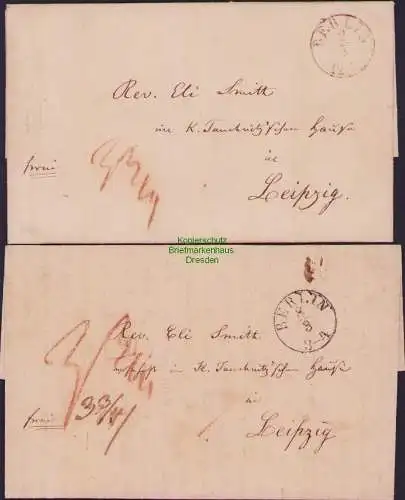 BERLIN
Rev. Eli Smith
im K. Tauchnitz'schen Hause
in
frei
Leipzig.
Kopierschutz
Briefmarkenhaus
Dresden
BERLIN
Rev. Eli Smith
in K. Tauchnitz'schen Hause
in
frei
3 3/4
Leipzig